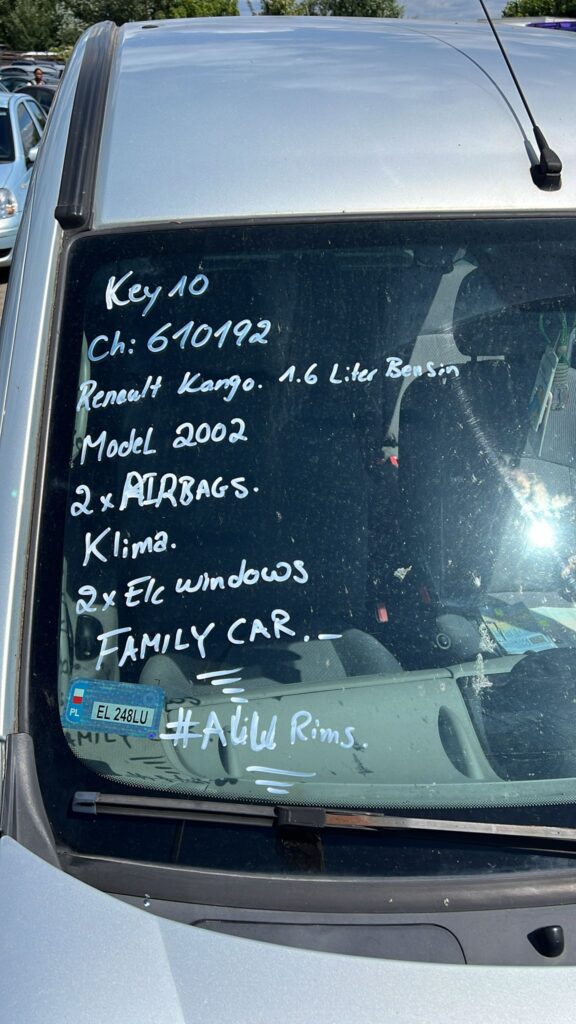 Key 10
Ch: 610192
Renault Kango. 1.6 Liter Bensin
Model 2002
2x AIRBAGS.
Klima.
2x Elc windows
FAMILY CAR._
PL EL 248LU
# Rims.